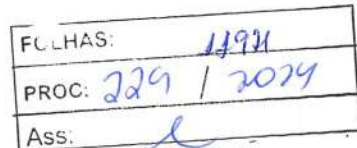 FOLHAS: 1194
PROC: 229 / 2024
Ass: